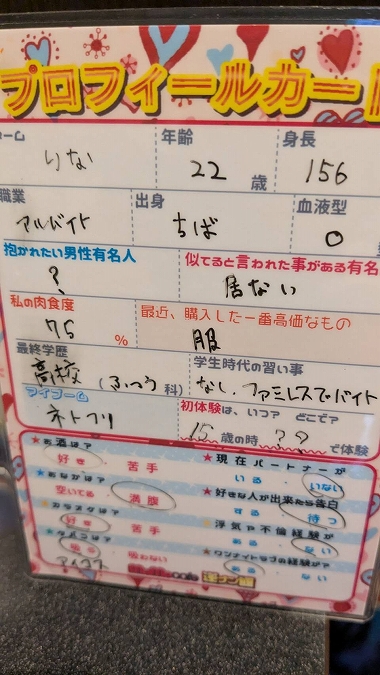 プロフィールカード
ーム 年齢 身長
りな 22 歳 156
職業 出身 血液型
アルバイト ちば O
抱かれたい男性有名人 似てると言われた事がある有名
? 居ない
私の肉食度 最近、購入した一番高価なもの
75 % 服
最終学歴 学生時代の習い事
高校 (ふつう 科) なし、ファミレスでバイト
マイブーム 初体験は、いつ? どこで?
ネトフリ 15 歳の時 ?? で体験
★お酒は? ★現在パートナーが
好き 苦手 いる いない
★おなかは? ★好きな人が出来たら告白
空いてる 満腹 する 待つ
カラオケは? 浮気や不倫経験が
好き 苦手 ある ない
★タバコは? ★ワンナイトラブの経験が?
吸う 吸わない ある ない
アイコス